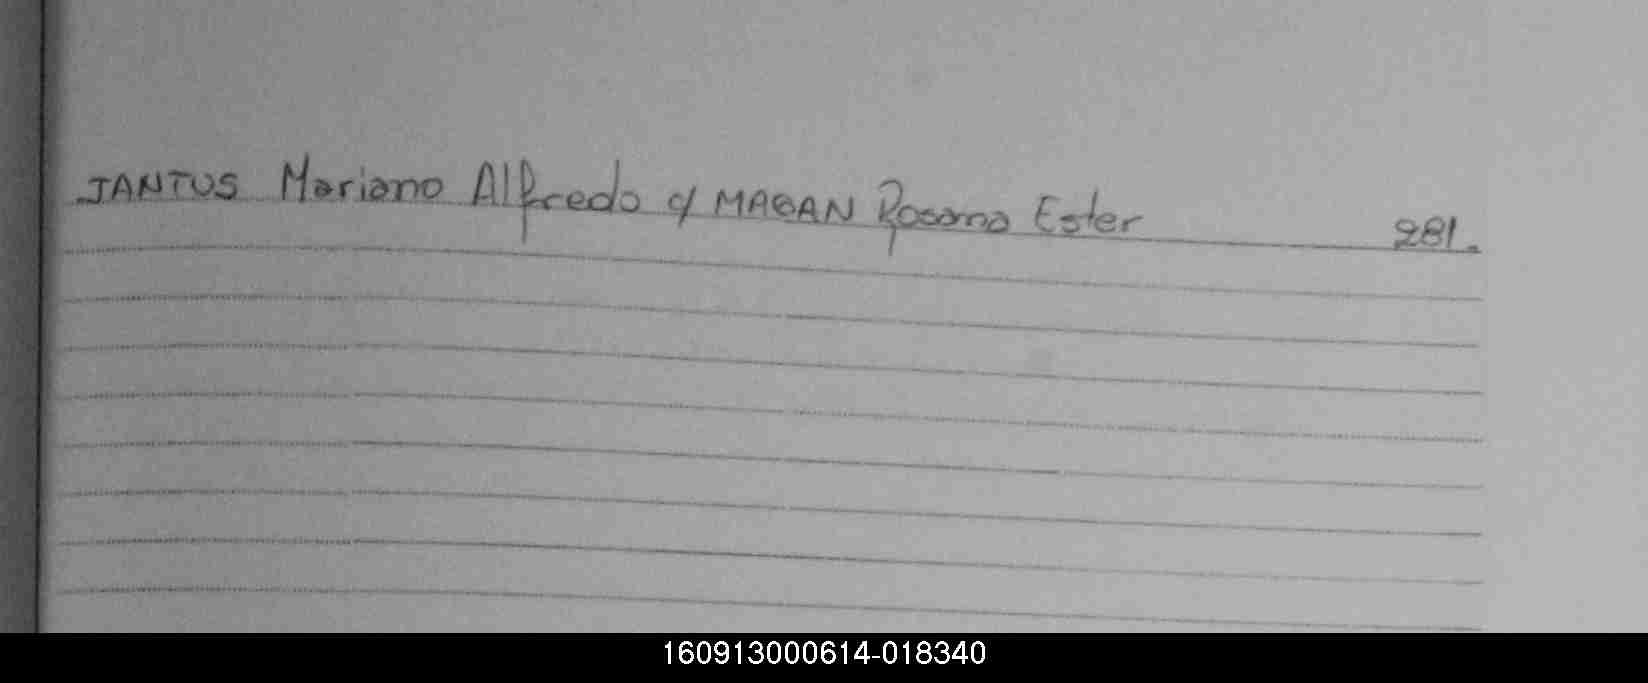 JANTUS Mariano Alfredo c/ MAGAN Rosana Ester 281.
160913000614-018340